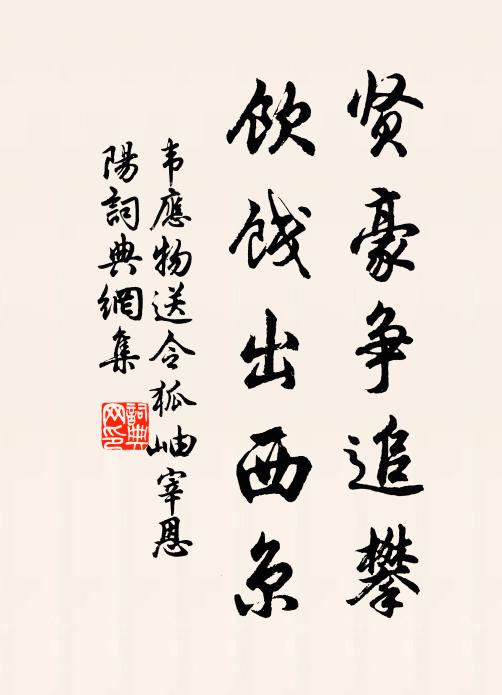 贤豪争追攀
饮饯出西京
韦應物送令狐岫宰恩
陽詞典網集
詞典
网印